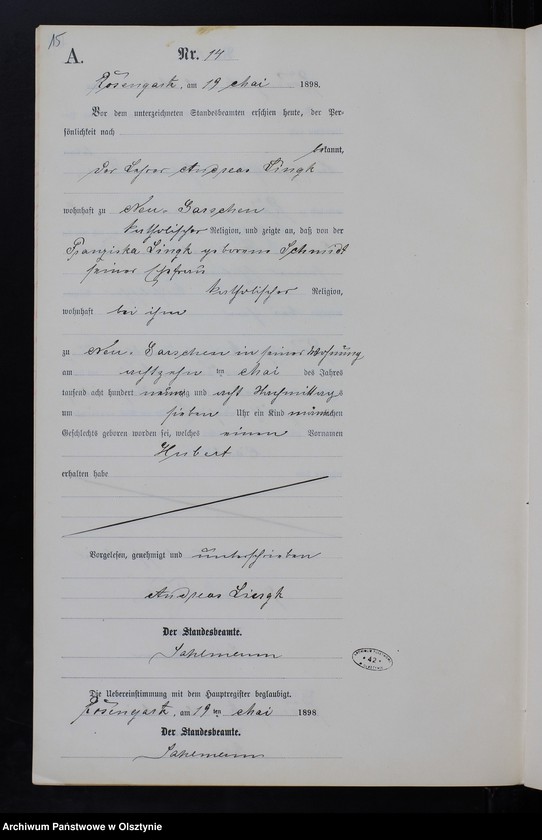 15
A.
Nr. 14
Rosengarth, am 19 Mai 1898.
Vor dem unterzeichneten Standesbeamten erschien heute, der Per-
sönlichkeit nach
bekannt,
der Lehrer Andreas Lingk
wohnhaft zu Neu-Garschen
katholischer Religion, und zeigte an, daß von der
Franziska Lingk geborene Schmidt
seiner Ehefrau
katholischer Religion,
wohnhaft bei ihm
zu Neu-Garschen in seiner Wohnung
am achtzehn ten Mai des Jahres
tausend acht hundert neunzig und acht Nachmittags
um sieben Uhr ein Kind männlichen
Geschlechts geboren worden sei, welches einen Vornamen
Hubert
erhalten habe
Vorgelesen, genehmigt und unterschrieben
Andreas Lingk
Der Standesbeamte.
Sahlmann
Die Uebereinstimmung mit dem Hauptregister beglaubigt.
Rosengarth, am 19 ten Mai 1898
Der Standesbeamte.
Sahlmann
42
Archiwum Państwowe w Olsztynie